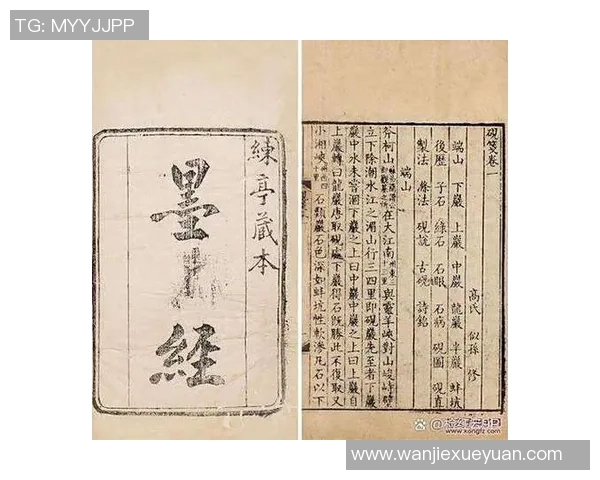 TG: MYYJJPP
楝亭藏本
墨
經
硯箋卷一
高氏 似孫 修
端山 下巖 上巖 中巖 龍巖 半巖 蚌坑
後歷 子石 綠石 石眼 石病 硯圖 硯直
製法 滌法 硯說 古硯 詩銘
端山
斧柯山在大江南與靈羊峽對山峻峙壁
立下際潮水江之湄山行三四里即硯巖先至者下巖
巖中水未嘗涸下巖之上曰中巖中巖之上曰上巖
上巖轉山曰龍巖唐取硯處下巖得石既勝此不復取又
小湘峽石類巖石色深如蚌坑性軟滲凡石以下
www.xongfz.com
www.wanjiexueyuan.com